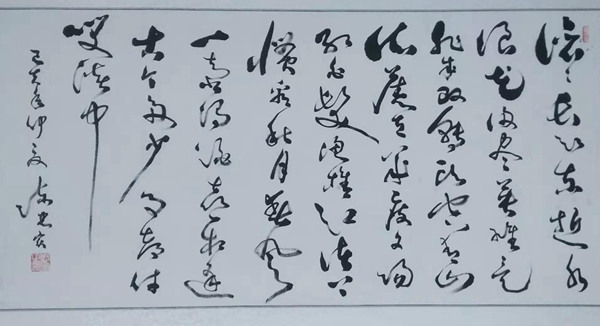 滚滚长江东逝水
浪花淘尽英雄是
非成败转头空青山
依旧在几度夕阳
红白髮渔樵江渚上
惯看秋月春风
一壶浊酒喜相逢
古今多少事都付
笑谈中
己亥年仲夏